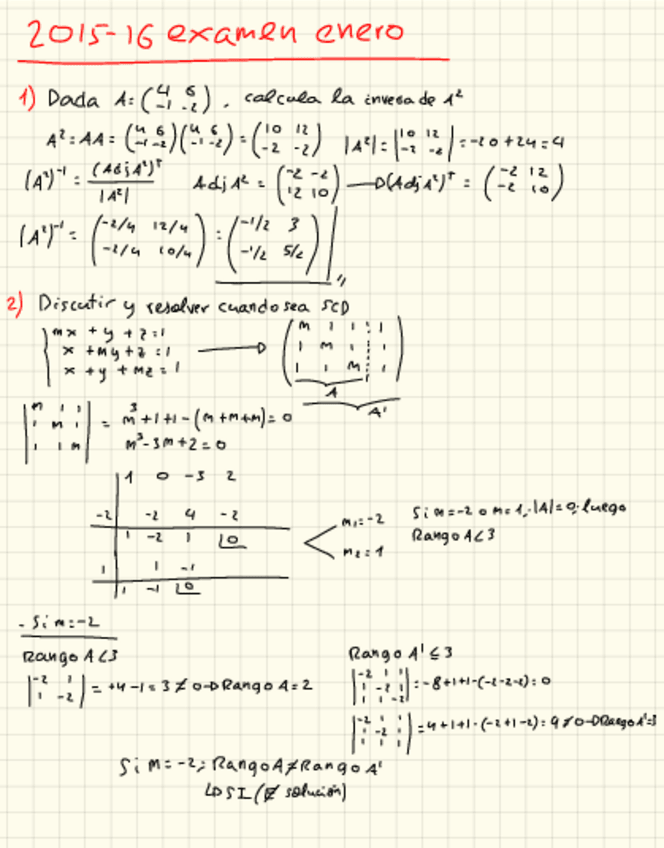 2015-16 examen enero
1) Dada A=(4 6 / -1 -2), calcula la inversa de A²
A²=AA=(4 6 / -1 -2)(4 6 / -1 -2)=(10 12 / -2 -2) |A²|=|10 12 / -2 -2|=-20+24=4
(A²)⁻¹=(AdjA²)ᵀ/|A²| AdjA²=(-2 -2 / 12 10)→(AdjA²)ᵀ=(-2 12 / -2 10)
(A²)⁻¹=(-2/4 12/4 / -2/4 10/4)=(-1/2 3 / -1/2 5/2)
2) Discutir y resolver cuando sea SCD
mx+y+z=1
x+my+z=1
x+y+mz=1
→
(m 1 1 1
1 m 1 1
1 1 m 1)
A
A'
|m 1 1 / 1 m 1 / 1 1 m| = m³+1+1-(m+m+m)=0
m³-3m+2=0
1 0 -3 2
-2 -2 4 -2
1 -2 1 0
1 1 -1
1 -1 0
m₁=-2
m₂=1
Si m=-2 o m=1, |A|=0, luego
Rango A<3
- Si m=-2
Rango A<3
|-2 1 / 1 -2| = +4-1=3≠0→Rango A=2
Rango A'≤3
|-2 1 1 / 1 -2 1 / 1 1 -2|=-8+1+1-(-2-2-2)=0
|-2 1 1 / 1 -2 1 / 1 1 1|=4+1+1-(-2+1-2)=9≠0→Rango A'=3
Si m=-2; Rango A≠Rango A'
↳SI (∄ solución)